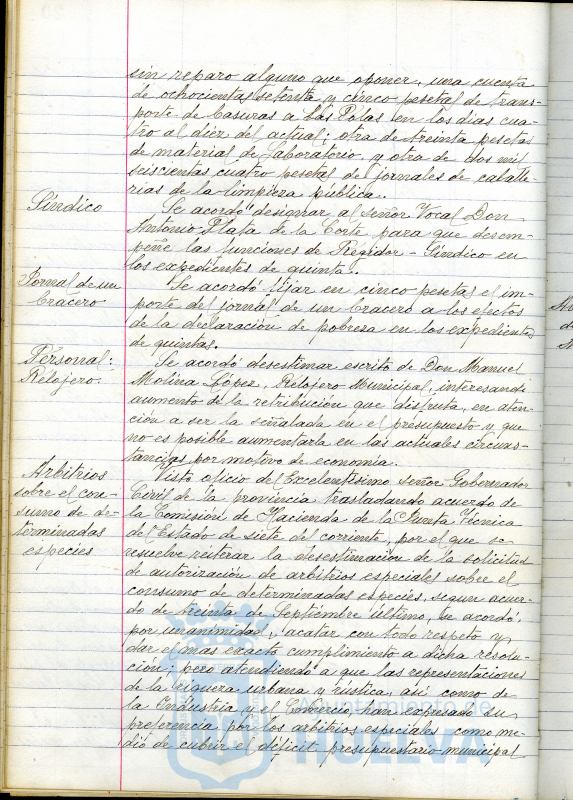 sin reparo alguno que oponer, una cuenta
de ochocientas setenta y cinco pesetas de trans-
porte de basuras a Las Polas en los días cua-
tro al diez del actual; otra de treinta pesetas
de material de Laboratorio y otra de dos mil
seiscientas cuatro pesetas de jornales de caballe-
rias de la limpieza pública.
Síndico
Se acordó designar al Señor Vocal Don
Antonio Plata de la Corte para que desem-
peñe las funciones de Regidor-Síndico en
los expedientes de quintas.
Jornal de un
bracero
Se acordó fijar en cinco pesetas el im-
porte del jornal de un bracero a los efectos
de la declaración de pobreza en los expedientes
de quintas.
Personal:
Relojero.
Se acordó desestimar escrito de Don Manuel
Molina López, Relojero Municipal, interesando
aumento de la retribución que disfruta, en aten-
ción a ser la señalada en el presupuesto y que
no es posible aumentarla en las actuales circuns-
tancias por motivo de economía.
Arbitrios
sobre el con-
sumo de de-
terminadas
especies
Visto oficio del Excelentísimo Señor Gobernador
Civil de la provincia trasladando acuerdo de
la Comisión de Hacienda de la Junta Técnica
del Estado de siete del corriente, por el que se
resuelve reiterar la desestimación de la solicitud
de autorización de arbitrios especiales sobre el
consumo de determinadas especies, segun acuer-
do de treinta de Septiembre último, se acordó,
por unanimidad, acatar con todo respeto y
dar el mas exacto cumplimiento a dicha resolu-
ción; pero atendiendo a que las representaciones
de la riqueza urbana y rústica, asi como de
la Industria y el Comercio, han expresado su
preferencia por los arbitrios especiales como me-
dio de cubrir el déficit presupuestario municipal
Ayuntamiento de
HUELVA